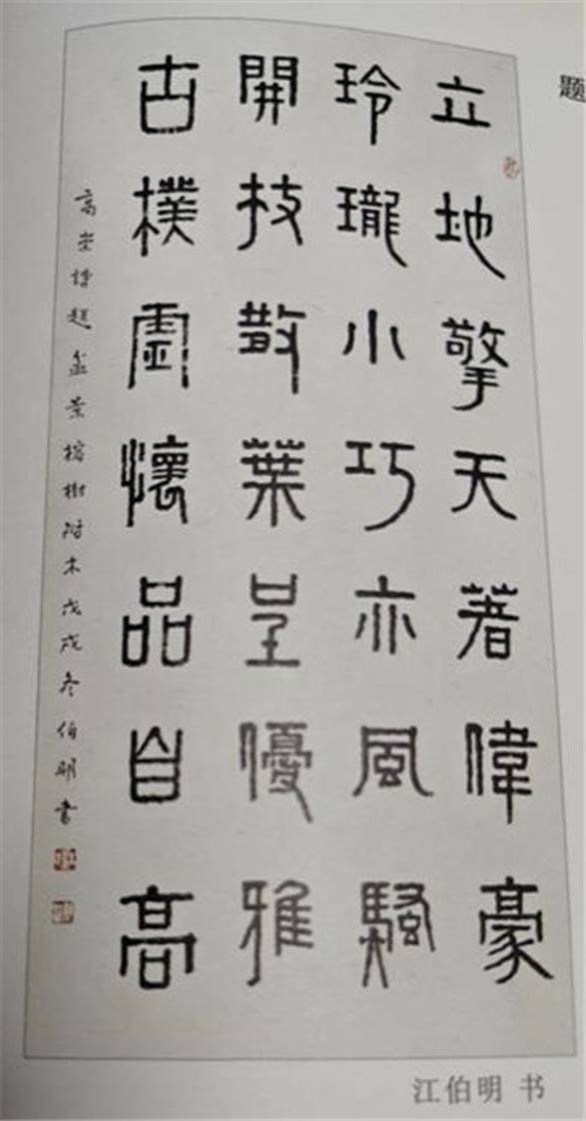 题
立地擎天著偉豪
玲瓏小巧亦風騷
開技散葉呈優雅
古樸虛懷品自高
高崇博題盆景榕樹附木戊戌冬伯明書
江伯明 书